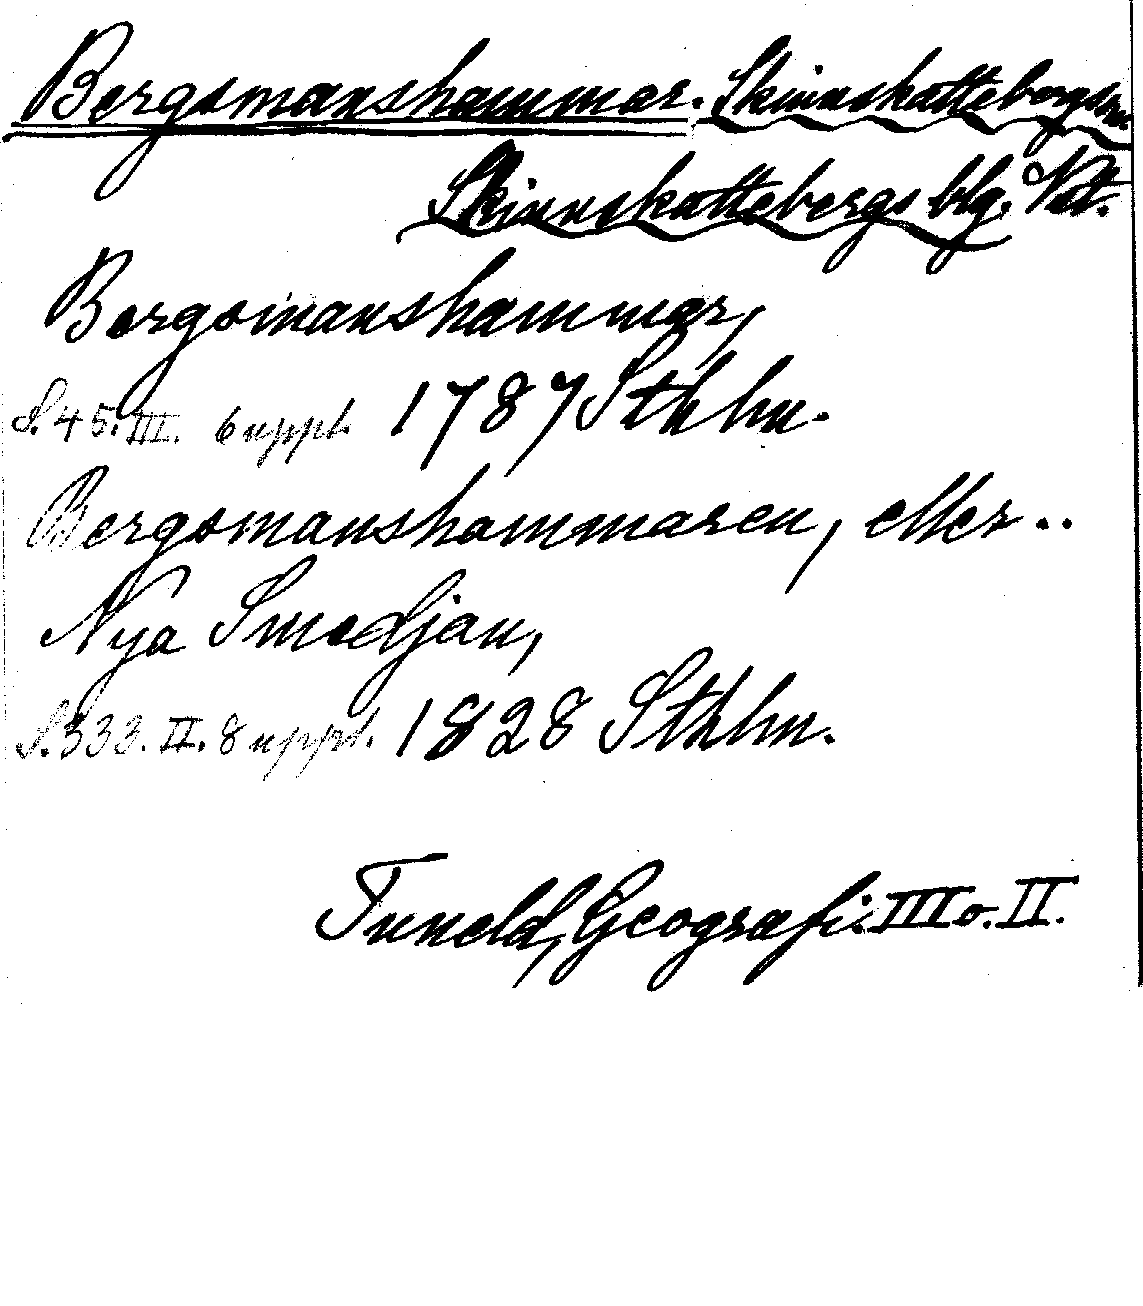 Bergsmanshammar. Skinnskattebergs sn
Skinnskattebergs blg. Vstm.
Bergsmanshammar,
S. 45. III. 6 uppl. 1787 Sthlm.
Bergsmanshammaren, eller ..
Nya Smedjan,
S. 333. II. 8 uppl. 1828 Sthlm.
Tuneld, Geografi. III o. II.